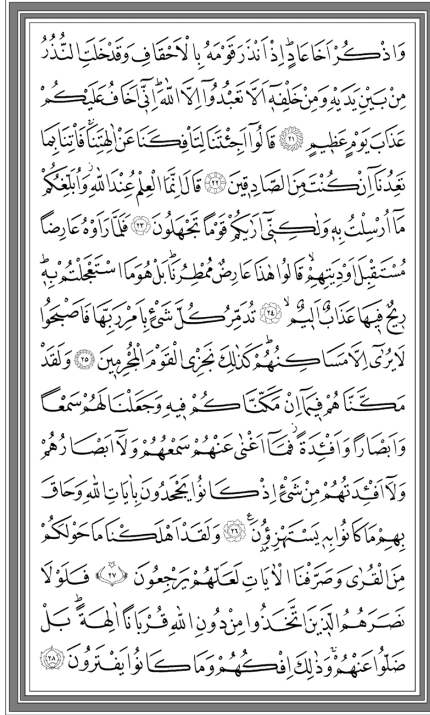 وَاذْكُرْ اَخَا عَادٍۜ اِذْ اَنْذَرَ قَوْمَهُ بِالْاَحْقَافِ وَقَدْ خَلَتِ النُّذُرُ
مِنْ بَيْنِ يَدَيْهِ وَمِنْ خَلْفِه۪ٓ اَلَّا تَعْبُدُٓوا اِلَّا اللّٰهَۜ اِنّ۪ٓي اَخَافُ عَلَيْكُمْ
عَذَابَ يَوْمٍ عَظ۪يمٍ ﴿٢١﴾ قَالُٓوا اَجِئْتَنَا لِتَأْفِكَنَا عَنْ اٰلِهَتِنَاۚ فَأْتِنَا بِمَا
تَعِدُنَٓا اِنْ كُنْتَ مِنَ الصَّادِق۪ينَ ﴿٢٢﴾ قَالَ اِنَّمَا الْعِلْمُ عِنْدَ اللّٰهِۘ وَاُبَلِّغُكُمْ
مَٓا اُرْسِلْتُ بِه۪ وَلٰكِنّ۪ٓي اَرٰيكُمْ قَوْمًا تَجْهَلُونَ ﴿٢٣﴾ فَلَمَّا رَاَوْهُ عَارِضًا
مُسْتَقْبِلَ اَوْدِيَتِهِمْۙ قَالُوا هٰذَا عَارِضٌ مُمْطِرُنَاۜ بَلْ هُوَ مَا اسْتَعْجَلْتُمْ بِه۪ۜ
ر۪يحٌ ف۪يهَا عَذَابٌ اَل۪يمٌۙ ﴿٢٤﴾ تُدَمِّرُ كُلَّ شَيْءٍ بِاَمْرِ رَبِّهَا فَاَصْبَحُوا
لَا يُرٰٓى اِلَّا مَسَاكِنُهُمْۜ كَذٰلِكَ نَجْزِي الْقَوْمَ الْمُجْرِم۪ينَ ﴿٢٥﴾ وَلَقَدْ
مَكَّنَّاهُمْ ف۪يمَٓا اِنْ مَكَّنَّاكُمْ ف۪يهِ وَجَعَلْنَا لَهُمْ سَمْعًا
وَاَبْصَارًا وَاَفْـِٔدَةًۘ فَمَٓا اَغْنٰى عَنْهُمْ سَمْعُهُمْ وَلَٓا اَبْصَارُهُمْ
وَلَٓا اَفْـِٔدَتُهُمْ مِنْ شَيْءٍ اِذْ كَانُوا يَجْحَدُونَ بِاٰيَاتِ اللّٰهِ وَحَاقَ
بِهِمْ مَا كَانُوا بِه۪ يَسْتَهْزِؤُ۫نَ۟ ﴿٢٦﴾ وَلَقَدْ اَهْلَكْنَا مَا حَوْلَكُمْ
مِنَ الْقُرٰى وَصَرَّفْنَا الْاٰيَاتِ لَعَلَّهُمْ يَرْجِعُونَ ﴿٢٧﴾ فَلَوْلَا
نَصَرَهُمُ الَّذ۪ينَ اتَّخَذُوا مِنْ دُونِ اللّٰهِ قُرْبَانًا اٰلِهَةًۜ بَلْ
ضَلُّوا عَنْهُمْۚ وَذٰلِكَ اِفْكُهُمْ وَمَا كَانُوا يَفْتَرُونَ ﴿٢٨﴾